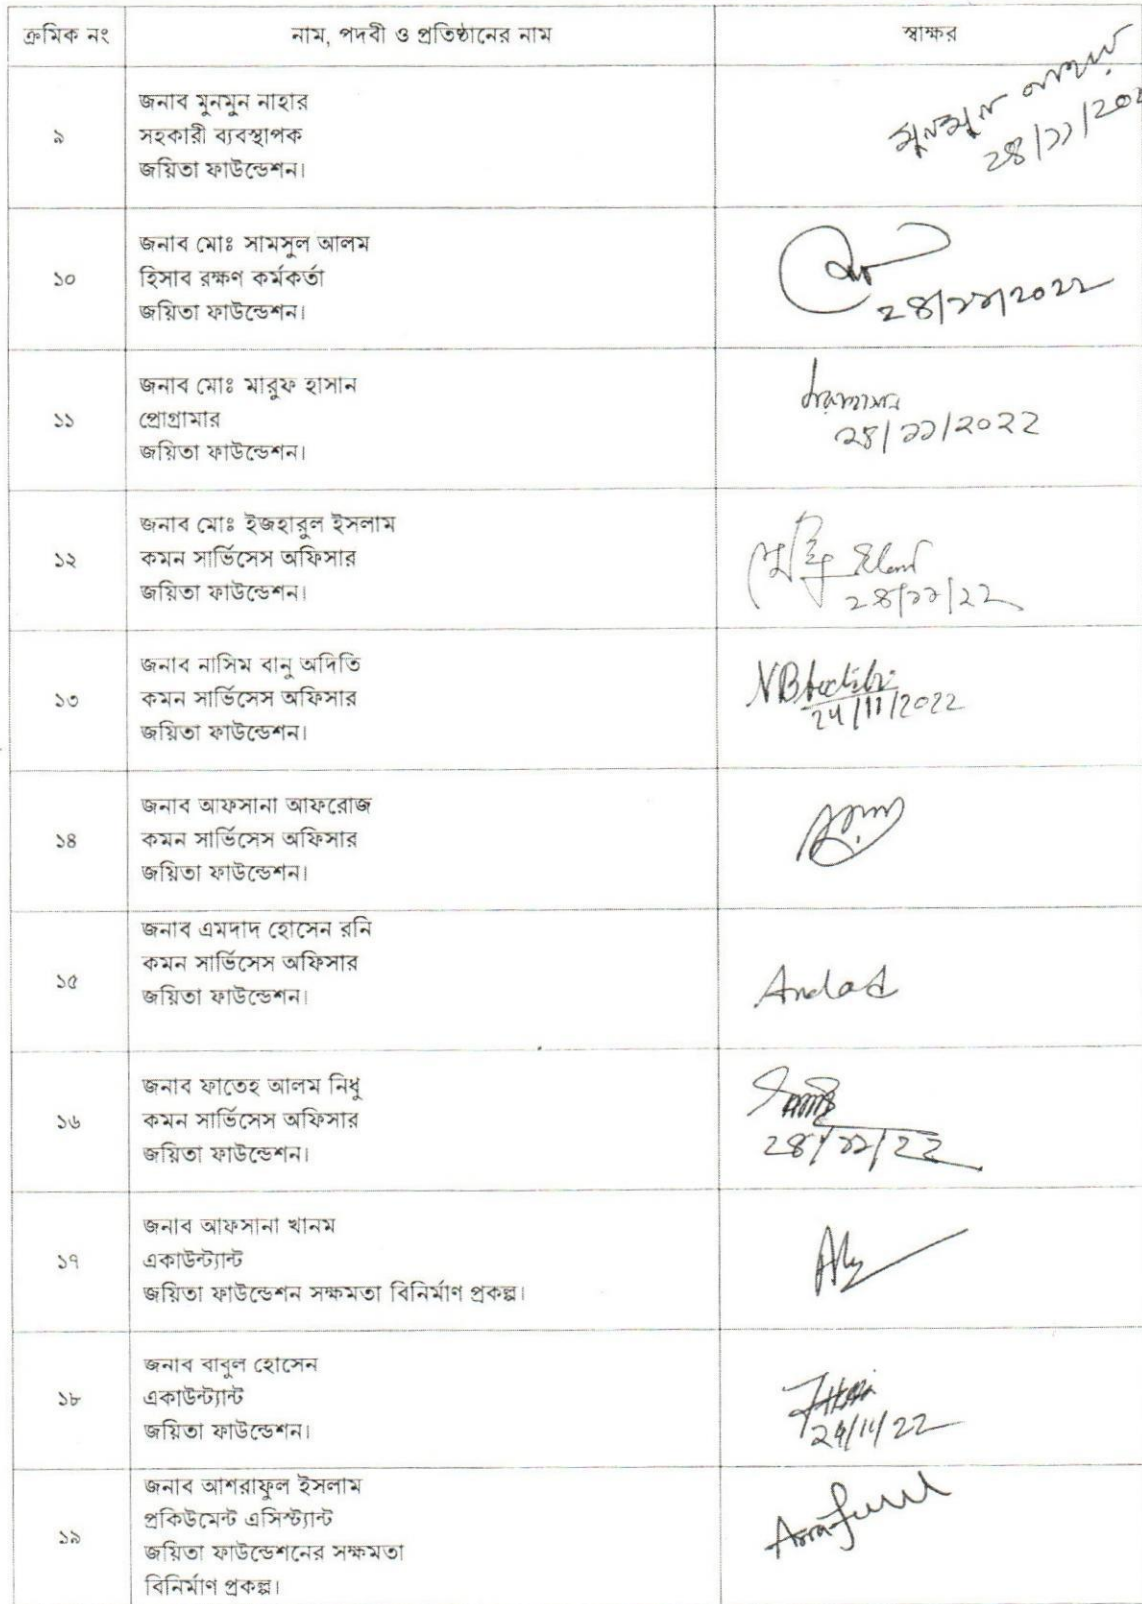 ক্রমিক নং নাম, পদবী ও প্রতিষ্ঠানের নাম স্বাক্ষর
৯
জনাব মুনমুন নাহার
সহকারী ব্যবস্থাপক
জয়িতা ফাউন্ডেশন।
মুনমুন নাহার
২৪/১১/২০২
১০
জনাব মোঃ সামসুল আলম
হিসাব রক্ষণ কর্মকর্তা
জয়িতা ফাউন্ডেশন।
২৪/১১/২০২২
১১
জনাব মোঃ মারুফ হাসান
প্রোগ্রামার
জয়িতা ফাউন্ডেশন।
২৪/১১/২০২২
১২
জনাব মোঃ ইজহারুল ইসলাম
কমন সার্ভিসেস অফিসার
জয়িতা ফাউন্ডেশন।
২৪/১১/২২
১৩
জনাব নাসিম বানু অদিতি
কমন সার্ভিসেস অফিসার
জয়িতা ফাউন্ডেশন।
24/11/2022
১৪
জনাব আফসানা আফরোজ
কমন সার্ভিসেস অফিসার
জয়িতা ফাউন্ডেশন।
১৫
জনাব এমদাদ হোসেন রনি
কমন সার্ভিসেস অফিসার
জয়িতা ফাউন্ডেশন।
১৬
জনাব ফাতেহ আলম নিধু
কমন সার্ভিসেস অফিসার
জয়িতা ফাউন্ডেশন।
২৪/১১/২২
১৭
জনাব আফসানা খানম
একাউন্ট্যান্ট
জয়িতা ফাউন্ডেশন সক্ষমতা বিনির্মাণ প্রকল্প।
১৮
জনাব বাবুল হোসেন
একাউন্ট্যান্ট
জয়িতা ফাউন্ডেশন।
24/11/22
১৯
জনাব আশরাফুল ইসলাম
প্রকিউমেন্ট এসিস্ট্যান্ট
জয়িতা ফাউন্ডেশনের সক্ষমতা
বিনির্মাণ প্রকল্প।